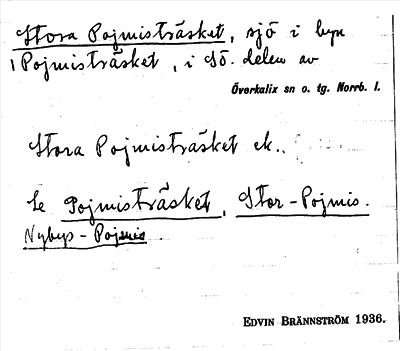 Stora Pojmisträsket, sjö i byn
Pojmisträsket, i sö. delen av
Överkalix sn o. tg. Norrb. l.
Stora Pojmisträsket ek..
Se Pojmisträsket, Stor-Pojmis.
Nybys-Pojmis
EDVIN BRÄNNSTRÖM 1936.